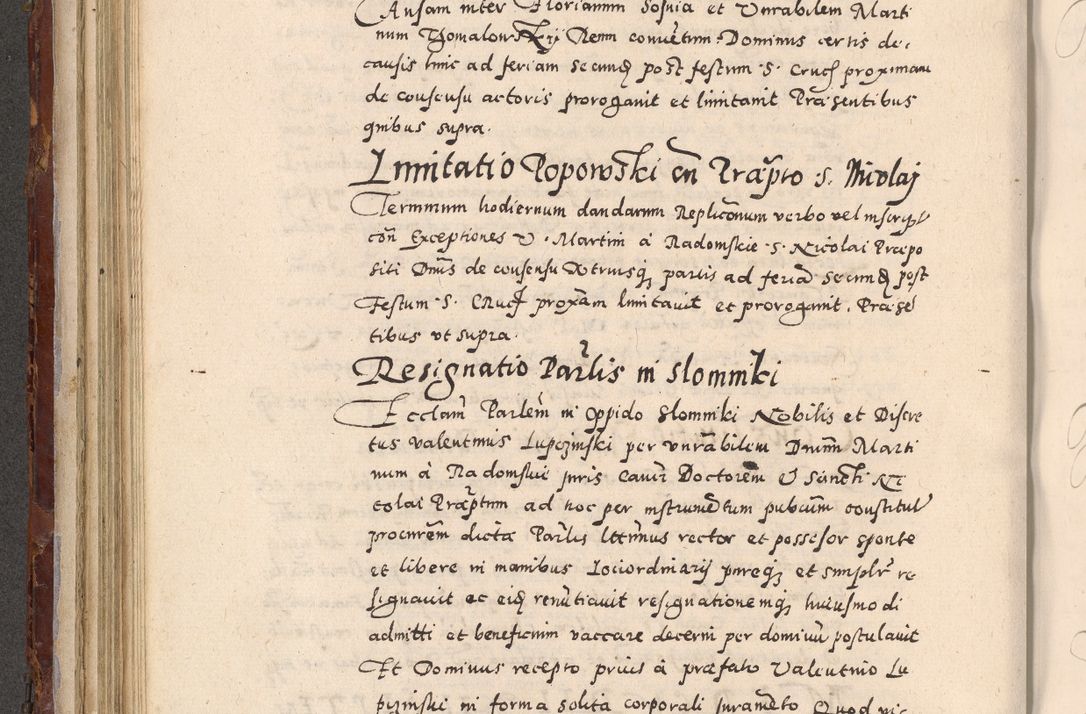 Causam inter Florianum Sosnia et Venerabilem Marti
num Thomalowskij Reum conventum Dominus certis de
causis hinc ad feriam secundam post festum S. Crucis proximam
de consensu actoris prorogavit et limitavit Præsentibus
quibus supra.
Limitatio Popowski cum Præpto S. Nicolaj
Terminum hodiernum dandarum Replicōnum verbo vel in script
con Exceptiones V. Martini à Radomskie S. Nicolai Præpo
siti Dnus de consensu utriusq partis ad feriā secundā post
Festum S. Cruc proxam limitavit et prorogavit. Præsē
tibus ut supra.
Resignatio Parlis in Slomniki
Ecclam Parlem in oppido Slomniki Nobilis et Discre
tus Valentinus Lupczinski per Vnrabilem Dnum Marti
num à Radomskie juris Canci Doctorem S Sancti Ni
colai Præptum ad hoc per instrumētum publcum constitut
procurem dictæ Parlis lttimus rector et possessor sponte
et libere in manibus Lociordinarij pureq et simplr re
signavit ac eiq renūtiavit resignationemq huiusmodi
admitti et beneficium vaccare decerni per dominū postulavit
Et Dominus recepto prius à præfato Valentino Lu
pczinski in forma solita corporali juramēto Quod